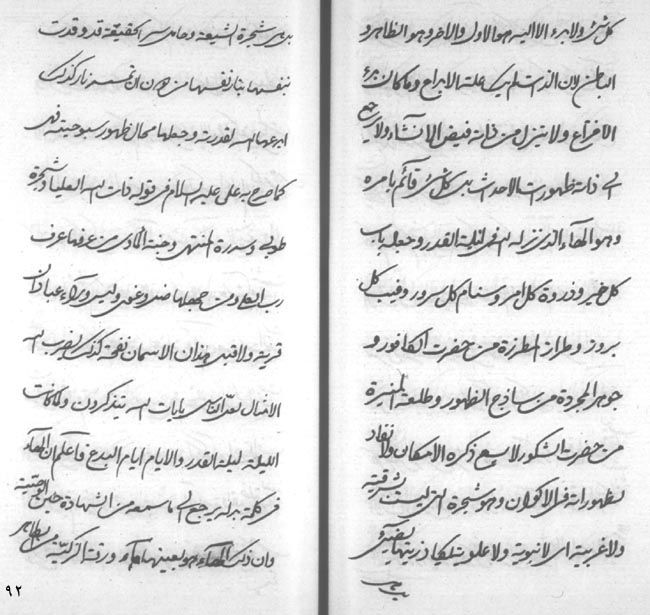 كل شيء ولا يرى الا اليه هو الاول والاخر وهو الظاهر و
الباطن لان الذات لم يك علة الابداع وما كان
الاختراع ولا يتنزل من ذاته فيض الانشاء ولا يرجع
الى ذاته ظهورات الاحداث بل كل شيء قائم بامره
وهو الهاء الذي نزله الله في ليلة القدر وجعله باب
كل خير وذروة كل امر وسنام كل سرور وغيب كل
بروز وطراز المطرزة من حضرت الكافور و
جوهر المجردة من ساذج الظهور وطلعة المنيرة
من حضرت الشكور لا يسع ذكره الامكان ولا نفاد
لظهوراته في الاكوان وهو شجرة التي ليست شرقية
ولا غربية اى لا نبوية ولا علوية يكاد زيتها يضيء
بل هي
بل هي شجرة الشيعة وحامل سر الحقيقة قد وقدت
بنفسها بنار نفسها من دون ان تمسه نار كذلك
ابدعها الله لقدرته وجعلها محال ظهور سبوحيته في
كما صرح به على عليه السلام في قوله ذات الله العليا وشجرة
طوبى وسدرة المنتهى وجنة المأوى من عرفها عرف
رب العلى ومن جهلها ضل وغوى وليس وراء عبادان
قرية ولا قبل هذان الاسمان نفحة كذلك يضرب الله
الامثال لعل الناس بايات الله يتذكرون ولما كانت
الليلة ليلة القدر والايام ايام البدع فاعلم ان الهاء
في كلمة بدله يرجع الى ما سمعه من الشهادة حين الوصية
وان ذلك الهاء هو بعينها هاء ورقة التركية من
٩٢